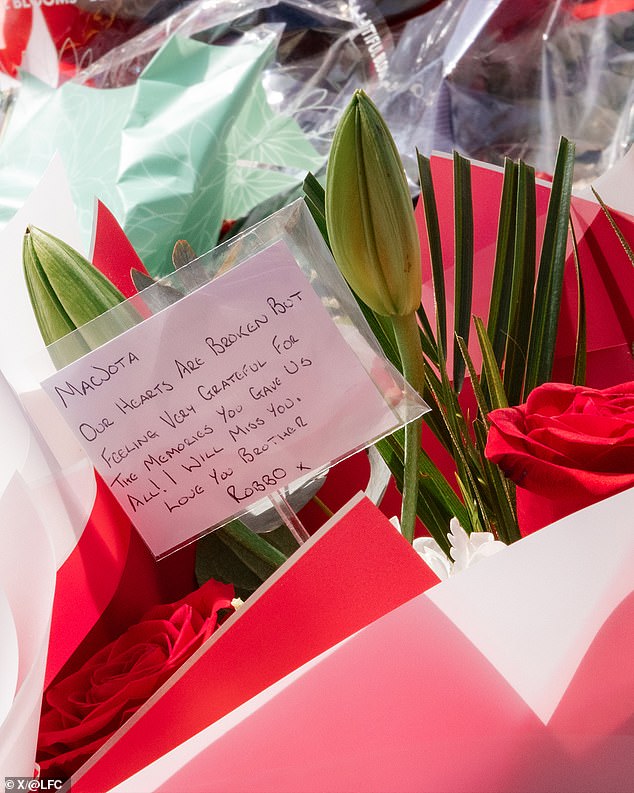 BLOOMS
BEAUTIFUL
MACJOTA
OUR HEARTS ARE BROKEN BUT
FEELING VERY GRATEFUL FOR
THE MEMORIES YOU GAVE US
ALL! I WILL MISS YOU.
LOVE YOU BROTHER
ROBBO X
© X/@LFC